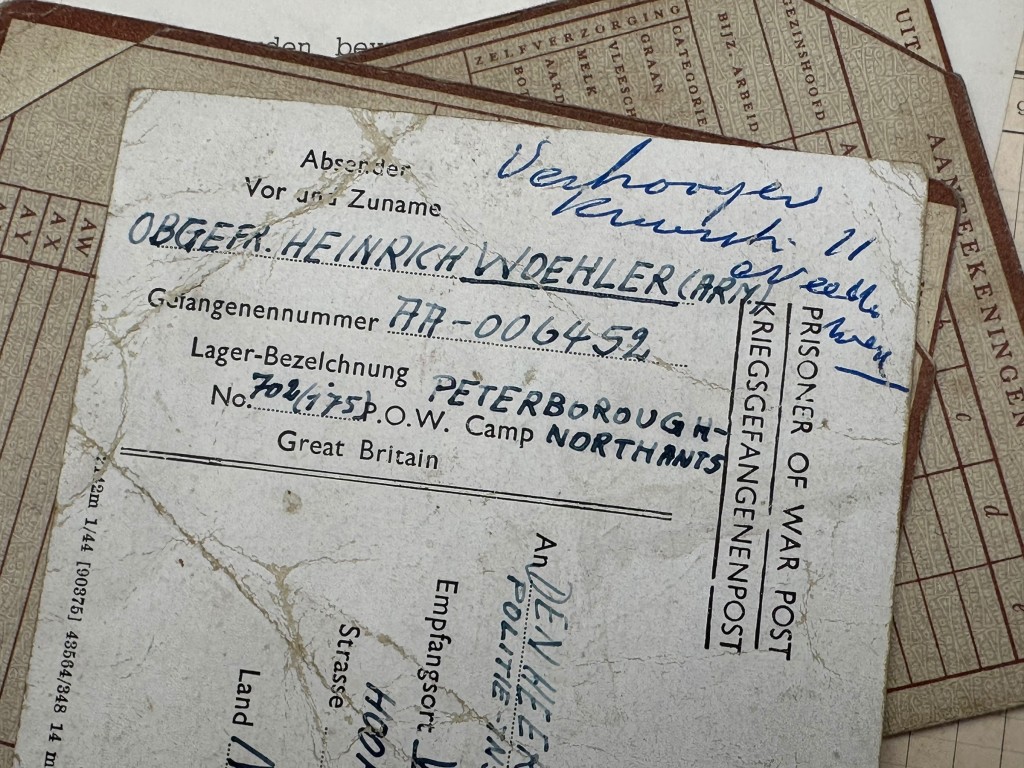 den bew
ZELFVERZORGING
BOT
AARD
MELK
VLEESCH
GRAAN
CATEGORIE
BIJZ. ARBEID
GEZINSHOOFD
UIT
AANTEEKENINGEN
AW
AX
AY
c
d
Absender
Vor und Zuname
OBGEFR. HEINRICH WOEHLER (ARM)
Gefangenennummer AA-006452
Lager-Bezeichnung PETERBOROUGH-
No. 702(175) P.O.W. Camp NORTHANTS
Great Britain
Verhooyen
11
PRISONER OF WAR POST
KRIEGSGEFANGENENPOST
An DEN HEER
POLITIE-INS
Empfangsort
Strasse HOO
Land
2m 1/44 [90875] 43564/348 14 m